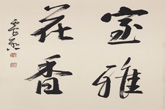 室雅
花香